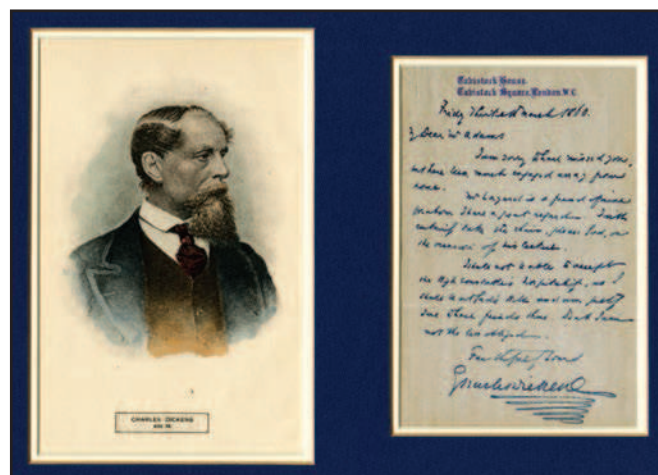 CHARLES DICKENS
Tavistock House.
Tavistock Square, London. W.C.
Friday Thirtieth March 1860.
My Dear Mr Adams
I am sorry to have missed you,
have been much engaged away from
home.
Mr Layard is a friend of mine
for whom I have a great regard. I will
take the chair, please God, on
the occasion of his lecture.
I shall not be able to accept
the High Constable's hospitality, as I
shall
have friends I am
not the less obliged.
Faithfully Yours
Charles Dickens